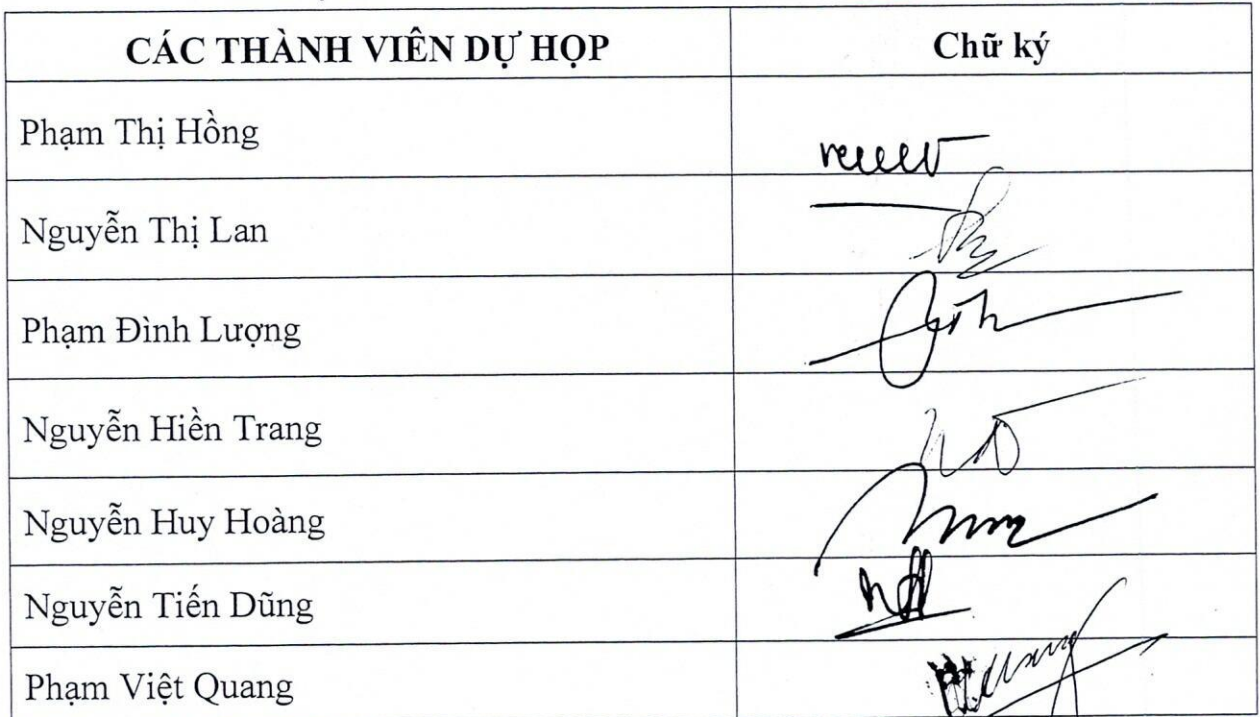 CÁC THÀNH VIÊN DỰ HỌP Chữ ký
Phạm Thị Hồng
Nguyễn Thị Lan
Phạm Đình Lượng
Nguyễn Hiền Trang
Nguyễn Huy Hoàng
Nguyễn Tiến Dũng
Phạm Việt Quang